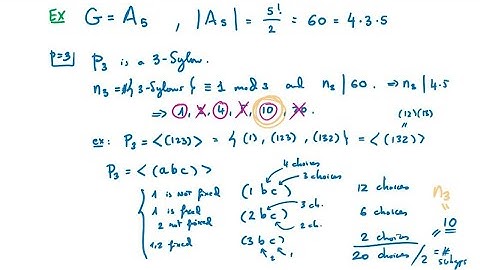 EX G = A₅ , |A₅| = 5!/2 = 60 = 4·3·5
p=3 P₃ is a 3-Sylow.
n₃ = #{3-Sylows} ≡ 1 mod 3 and n₃ | 60. ⇒ n₃ | 4·5
⇒ 1, 2, 4, 5, 10, 20.
(12)(13)
"
ex: P₃ = <(123)> = { (1), (123), (132) } = <(132)>
P₃ = <(abc)>
4 choices
3 choices
1 is not fixed (1 b c) 12 choices
1 is fixed 2 not fixed (2 b c) 3 ch. 2 ch. 6 choices
1,2 fixed (3 b c) 2 choices
2 1
20 choices /2 = # subgps
n₃
"
10